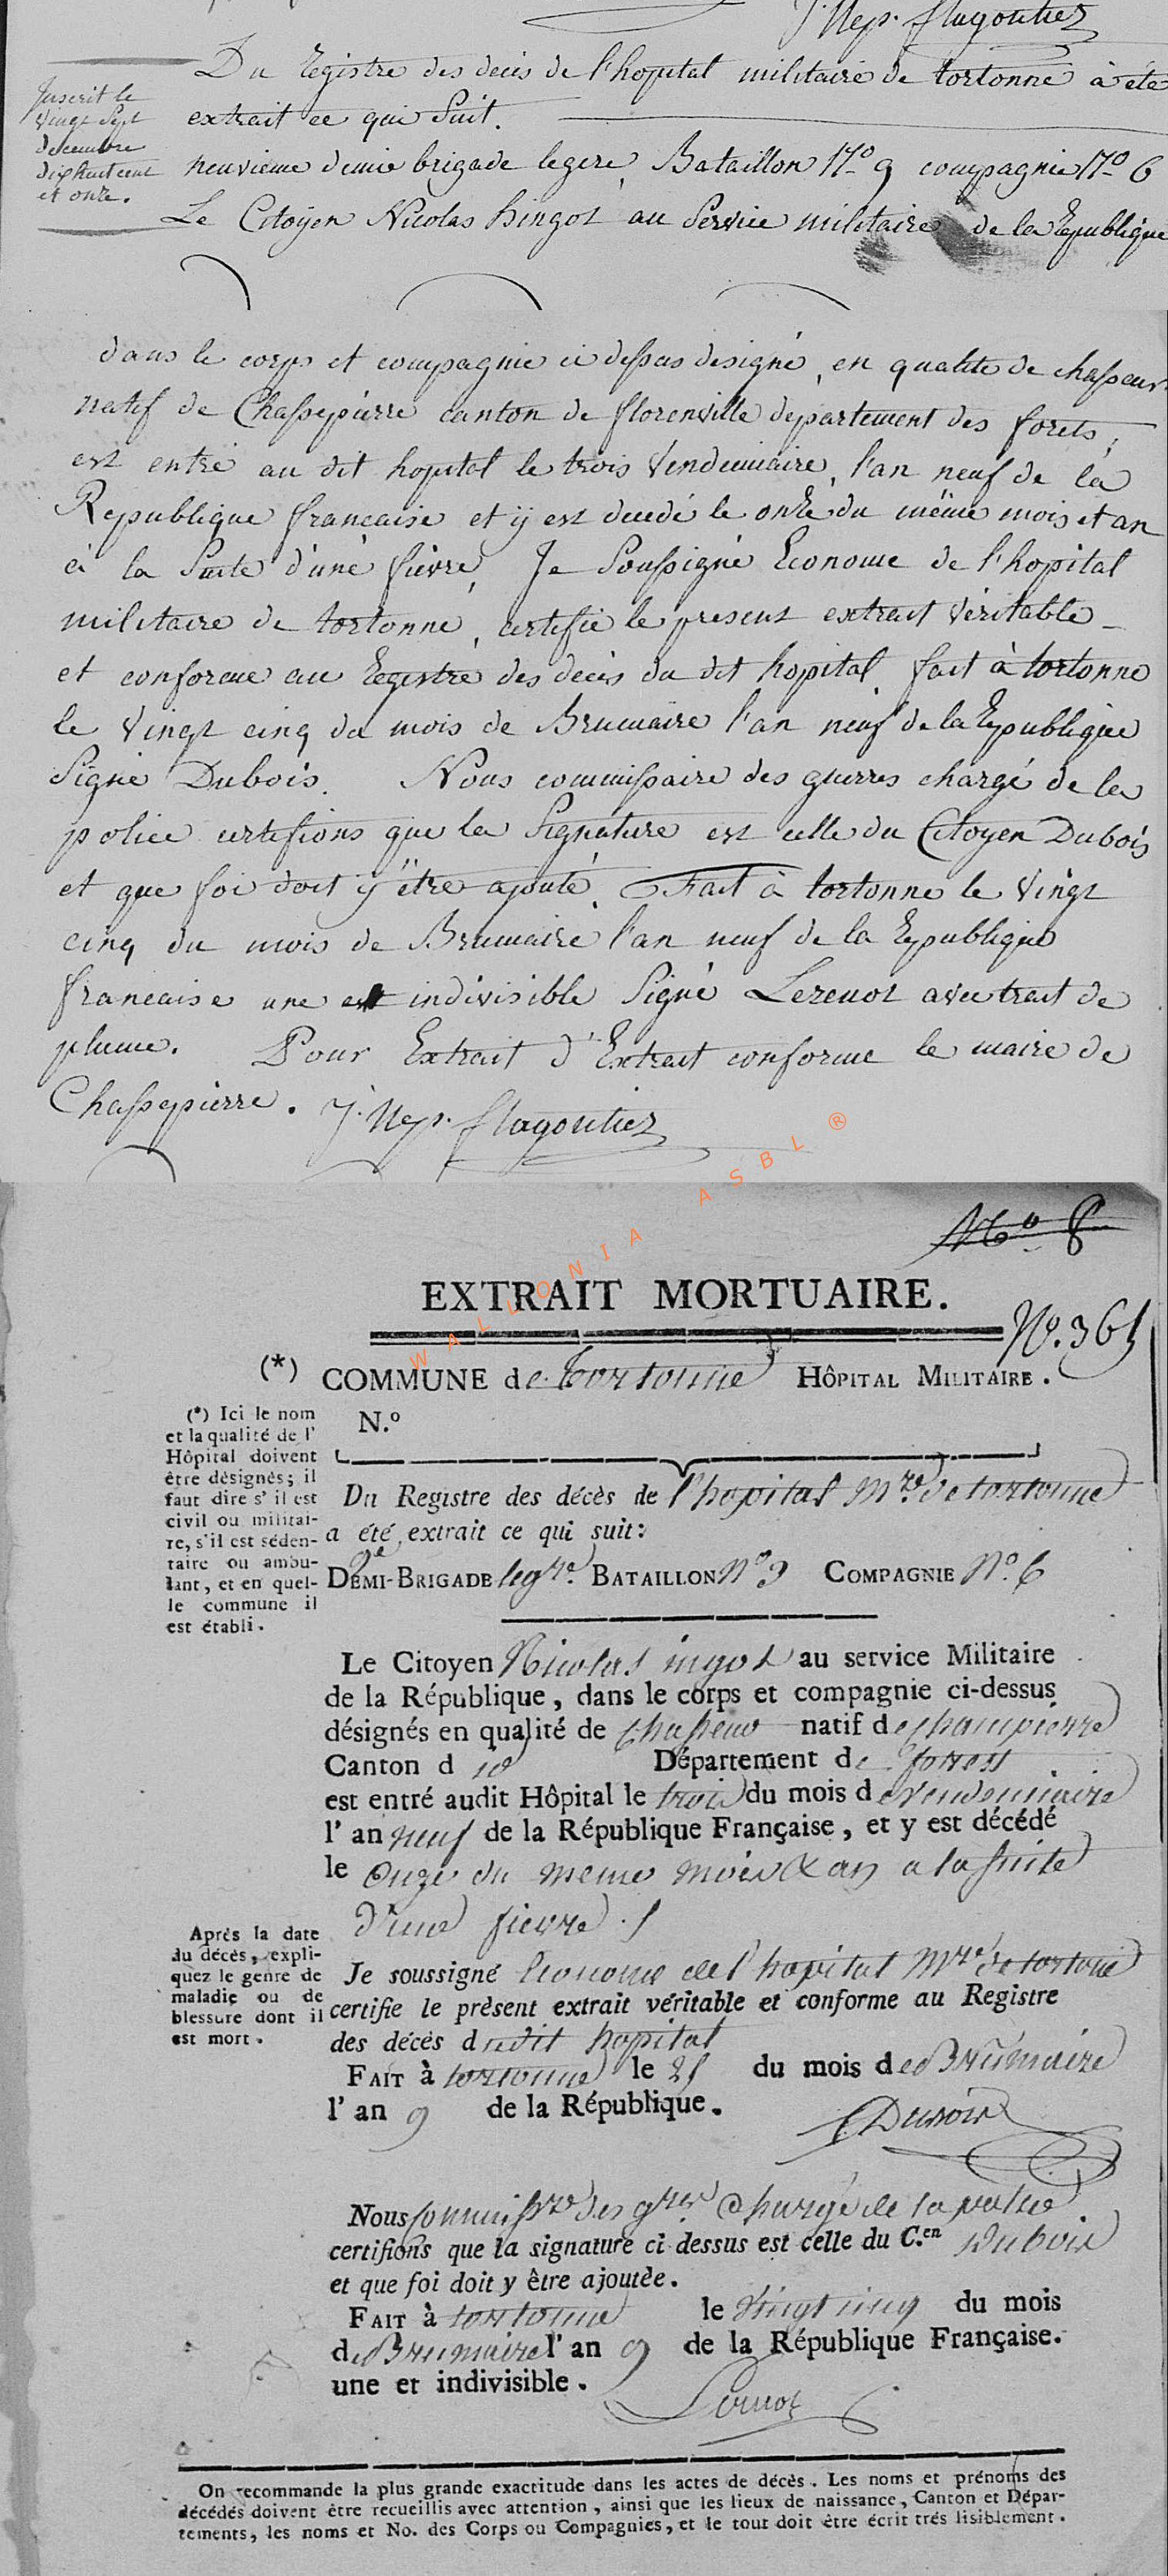 J. Nep. flagontier
Du Registre des deces de l'hopital militaire de tortonne à été
Inscrit le
vingt Sept
decembre
dix huit cent
et onze.
extrait ce qui Suit.
neuvieme demie brigade legere, Bataillon N° 9 compagnie N° 6
Le Citoyen Nicolas hingot au Service militaire de la Republique
dans le corps et compagnie ci dessus designé, en qualité de chasseur
natif de Chassepierre canton de florenville departement des forets,
est entré au dit hopital le trois Vendemiaire, l'an neuf de la
Republique francaise et ÿ est decedé le onze du même mois et an
à la Suite d'une fievre, Je Soussigné Econome de l'hopital
militaire de tortonne, certifie le present extrait Véritable
et conforme au Registre des decès du dit hopital, fait à tortonne
le Vingt cinq du mois de Brumaire l'an neuf de la Republique
Signé Dubois. Nous commissaire des guerres chargé de la
police certifions que la Signature est celle du Citoyen Dubois
et que foi doit ÿ être ajouté. Fait à tortonne le Vingt
cinq du mois de Brumaire l'an neuf de la Republique
francaise une et indivisible Signé Lerenot avec trait de
plume. Pour Extrait d'Extrait conforme le maire de
Chassepierre. J. Nep. flagontier
WALLONIA ASBL ®
N° 8
EXTRAIT MORTUAIRE.
N°. 365
(*) COMMUNE de Tortonne HÔPITAL MILITAIRE.
(*) Ici le nom
et la qualité de l'
Hôpital doivent
être désignés; il
faut dire s'il est
civil ou militai-
re, s'il est séden-
taire ou ambu-
lant, et en quel-
le commune il
est établi.
N.°
Du Registre des décès de l'hopital M.re de tortonne
a été extrait ce qui suit:
9e
DEMI-BRIGADE leg.re BATAILLON N° 9 COMPAGNIE N°. 6
Le Citoyen Nicolas ingot au service Militaire
de la République, dans le corps et compagnie ci-dessus
désignés en qualité de Chasseur natif de champierre
Canton d id Département de forest
est entré audit Hôpital le trois du mois de vendemiaire
l'an neuf de la République Française, et y est décédé
le onze du meme mois & an a la suite
d'une fievre.
Après la date
du décès, expli-
quez le genre de
maladie ou de
blessure dont il
est mort.
Je soussigné Econome de l'hopital M.re de tortone
certifie le prèsent extrait véritable et conforme au Registre
des décès dudit hopital
FAIT à tortonne le 25 du mois de Brumaire
l'an 9 de la République.
Dubois
Nous Commiss.re des g.res Chargé de la police
certifions que la signature ci dessus est celle du C.en Dubois
et que foi doit y être ajoutée.
FAIT à tortonne le Vingt cinq du mois
de Brumaire l'an 9 de la République Française.
une et indivisible.
On recommande la plus grande exactitude dans les actes de décès. Les noms et prénoms des
décédés doivent être recueillis avec attention, ainsi que les lieux de naissance, Canton et Dépar-
tements, les noms et No. des Corps ou Compagnies, et le tout doit être écrit trés lisiblement.